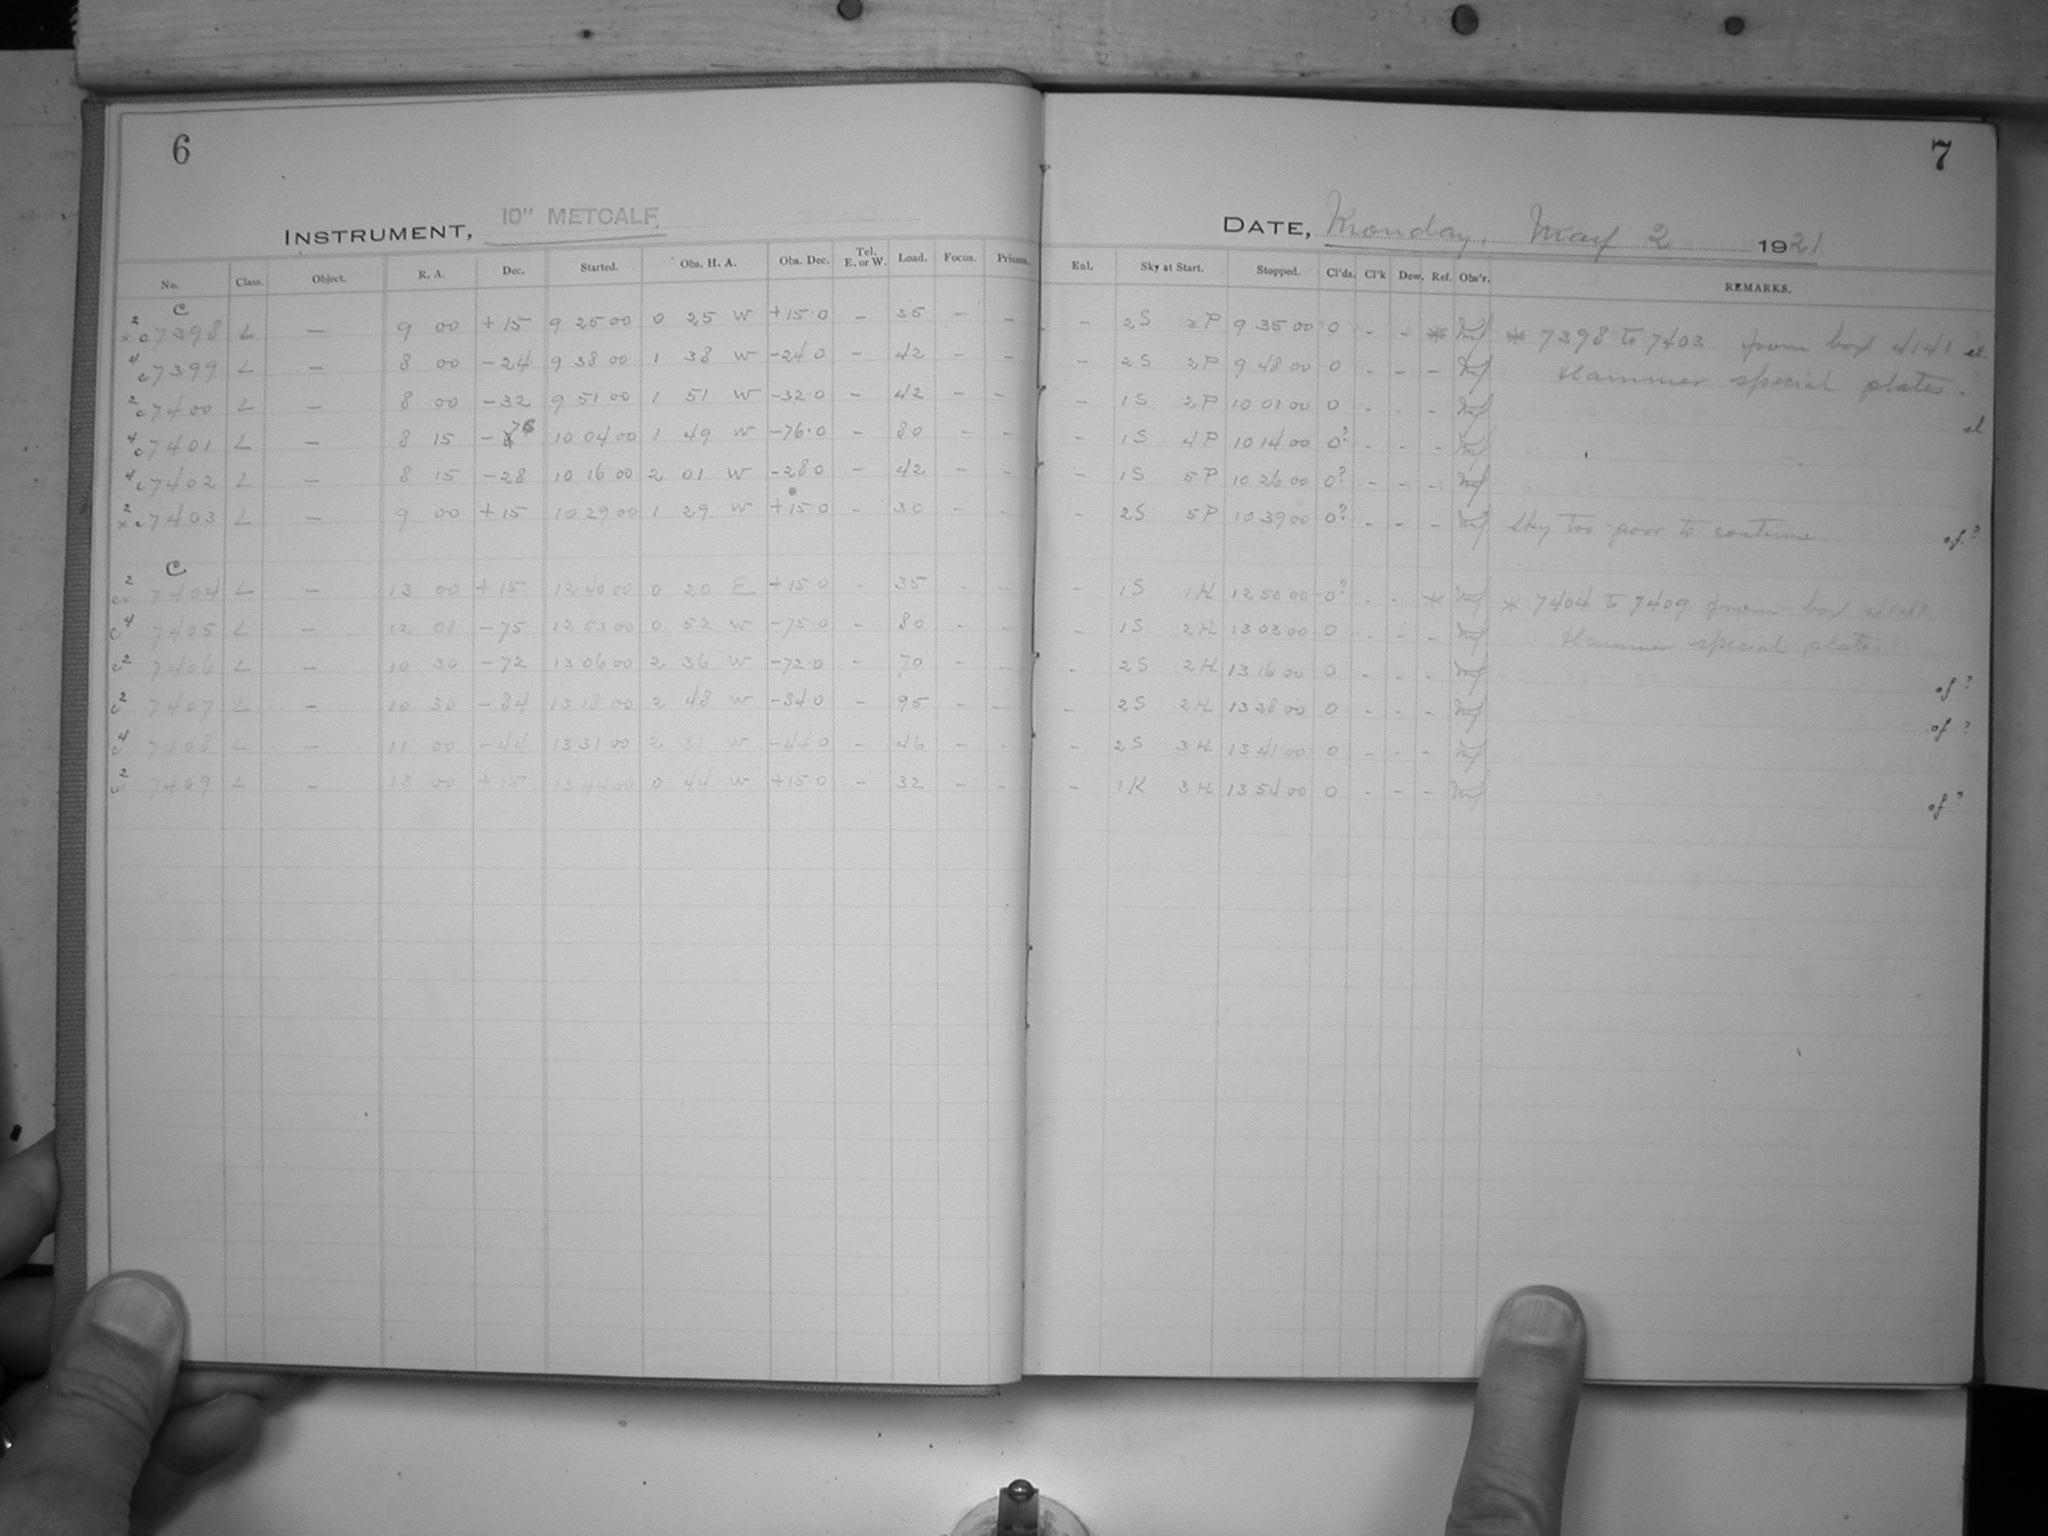 6
INSTRUMENT, 10" METCALF
No. Class. Object. R. A. Dec. Started. Obs. H. A. Obs. Dec. Tel. E. or W. Load. Focus. Prisms.
C
2 x c 7398 L — 9 00 +15 9 25 00 0 25 W +15.0 – 35 – –
4 c 7399 L — 8 00 -24 9 38 00 1 38 W -24 0 – 42 – –
2 c 7400 L — 8 00 -32 9 51 00 1 51 W -32.0 – 42 – –
4 c 7401 L — 8 15 -76 10 04 00 1 49 W -76.0 – 80 – –
4 c 7402 L — 8 15 -28 10 16 00 2 01 W -28 0 – 42 – –
2 x c 7403 L — 9 00 +15 10 29 00 1 29 W +15 0 – 30 – –
C
2 cx 7404 L — 13 00 +15 12 40 00 0 20 E +15.0 – 35 – –
c 4 7405 L — 12 01 -75 12 53 00 0 52 W -75.0 – 80 – –
c 2 7406 L — 10 30 -72 13 06 00 2 36 W -72.0 – 70 – –
c 2 7407 L — 10 30 -84 13 18 00 2 48 W -84 0 – 95 – –
c 4 7408 L — 11 00 -44 13 31 00 2 31 W -44 0 – 46 – –
2 cx 7409 L — 13 00 +15 13 44 00 0 44 W +15.0 – 32 – –
7
DATE, Monday, May 2 1921
Enl. Sky at Start. Stopped. Cl'ds. Cl'k Dew. Ref. Obs'r. REMARKS.
– 2S 3P 9 35 00 0 - - * * 7398 to 7403 from box 4141 el.
– 2S 2P 9 48 00 0 - - - Hammer special plates.
– 1S 2P 10 01 00 0 - - - el
– 1S 4P 10 14 00 0? - - -
– 1S 5P 10 26 00 0? - - -
– 2S 5P 10 39 00 0? - - - Sky too poor to continue of?
– 1S 1H 12 50 00 0? - - * * 7404 to 7409 from box 4141
– 1S 2H 13 03 00 0 - - - Hammer special plates
– 2S 2H 13 16 00 0 - - - of?
– 2S 2H 13 28 00 0 - - - of?
– 2S 3H 13 41 00 0 - - -
– 1K 3H 13 54 00 0 - - - of?